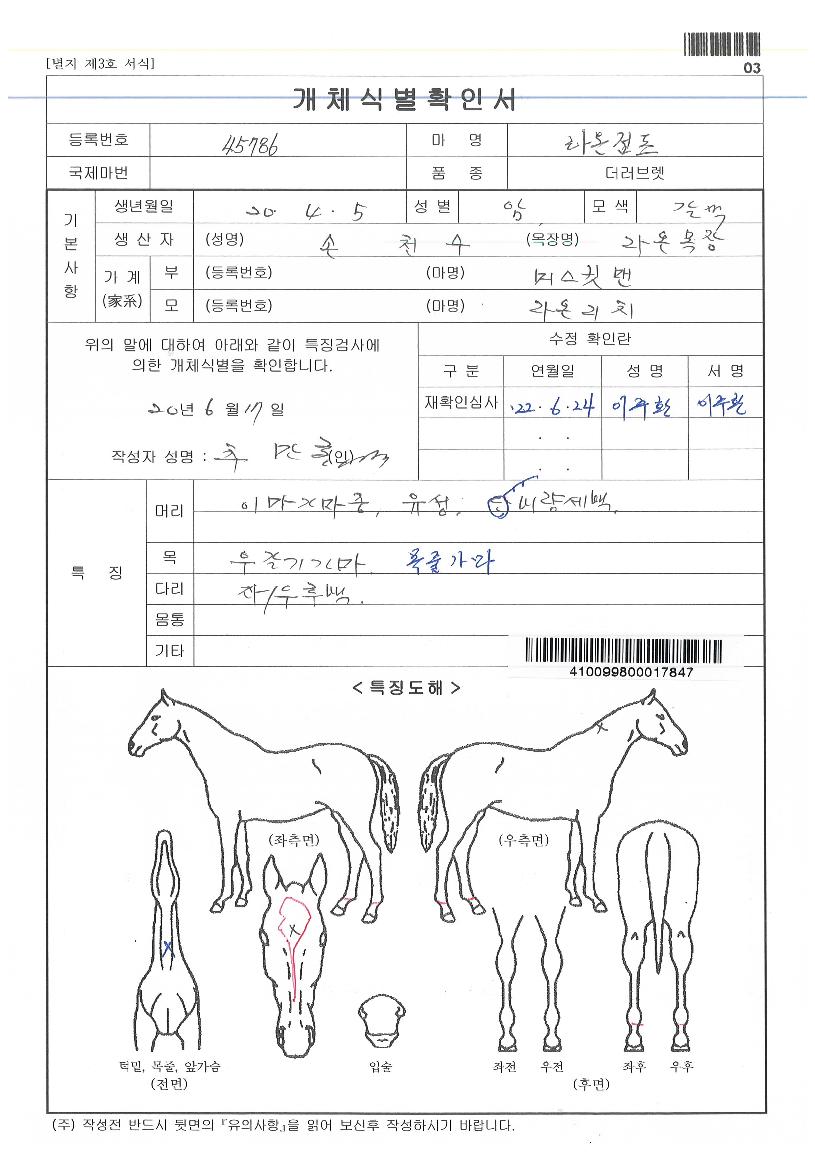 [별지 제3호 서식]
03
개체식별확인서
등록번호 45786 마 명 라온점프
국제마번 품 종 더러브렛
기본사항
생년월일 20. 4. 5 성 별 암 모 색 갈색
생 산 자 (성명) 손 천 수 (목장명) 라온목장
가 계 (家系) 부 (등록번호) (마명) 머스킷맨
모 (등록번호) (마명) 라온리치
위의 말에 대하여 아래와 같이 특징검사에
의한 개체식별을 확인합니다.
20년 6 월 17 일
작성자 성명 : (인)
수정 확인란
구 분 연월일 성 명 서 명
재확인심사 '22. 6. 24 이주환 이주환
. .
. .
특 징
머리 이마 유성, 비량세백.
목 목줄가마
다리 좌/우후백.
몸통
기타
410099800017847
< 특징도해 >
(좌측면) (우측면)
턱밑, 목줄, 앞가슴 입술 좌전 우전 좌후 우후
(전면) (후면)
(주) 작성전 반드시 뒷면의 『유의사항』을 읽어 보신후 작성하시기 바랍니다.